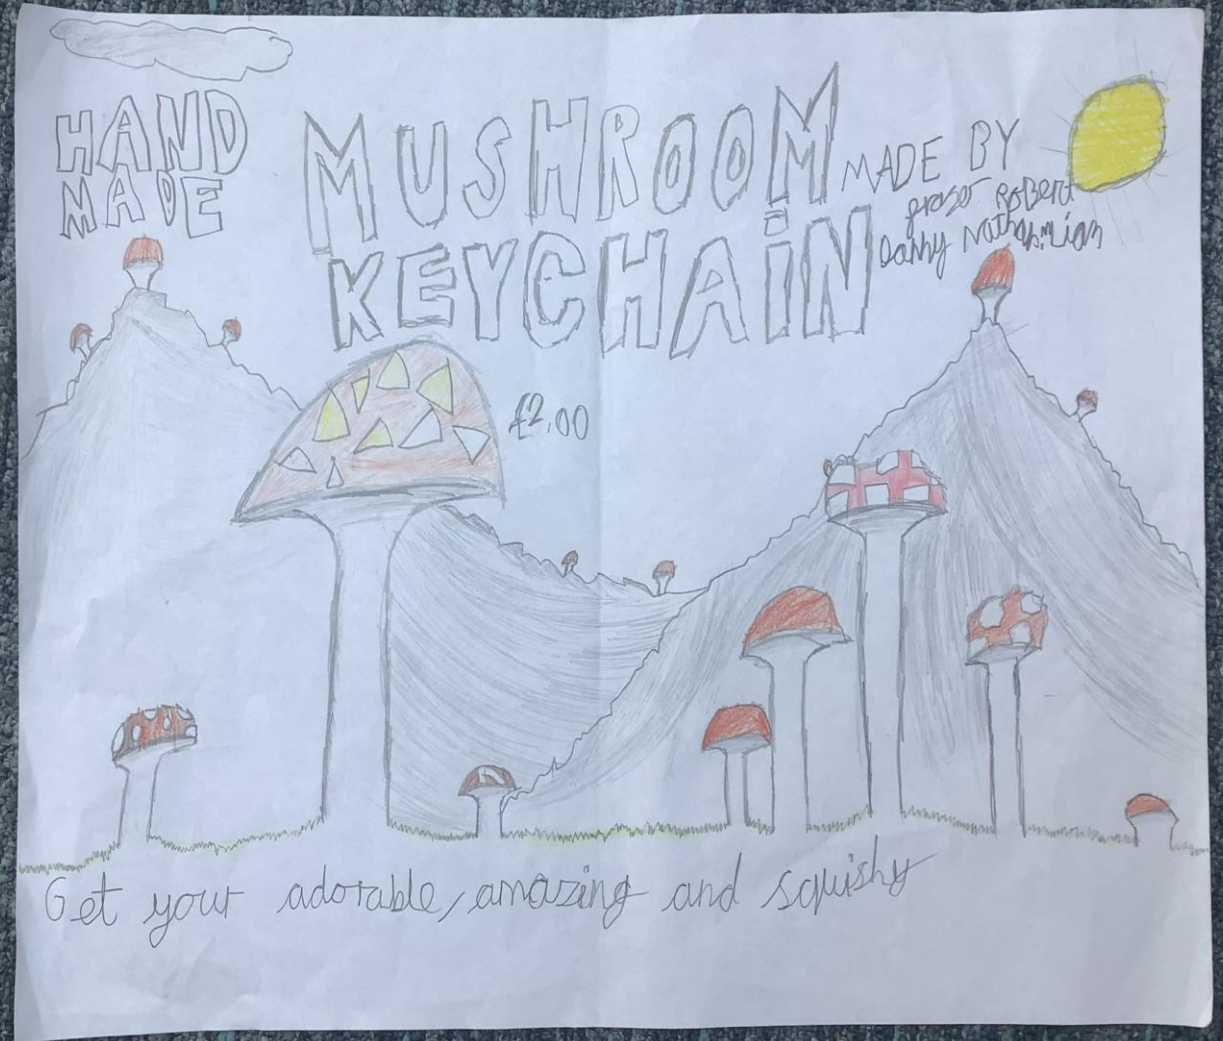 HAND
MADE
MUSHROOM
KEYCHAIN
MADE BY
Robert
Danny Nathan
£2.00
Get your adorable, amazing and squishy